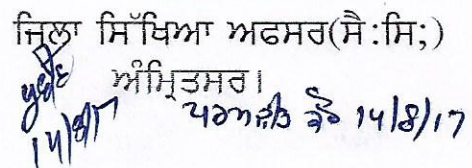 ਜ਼ਿਲ੍ਹਾ ਸਿੱਖਿਆ ਅਫਸਰ(ਸੈ:ਸਿ;)
ਅੰਮ੍ਰਿਤਸਰ।
14/8/17
14/8/17